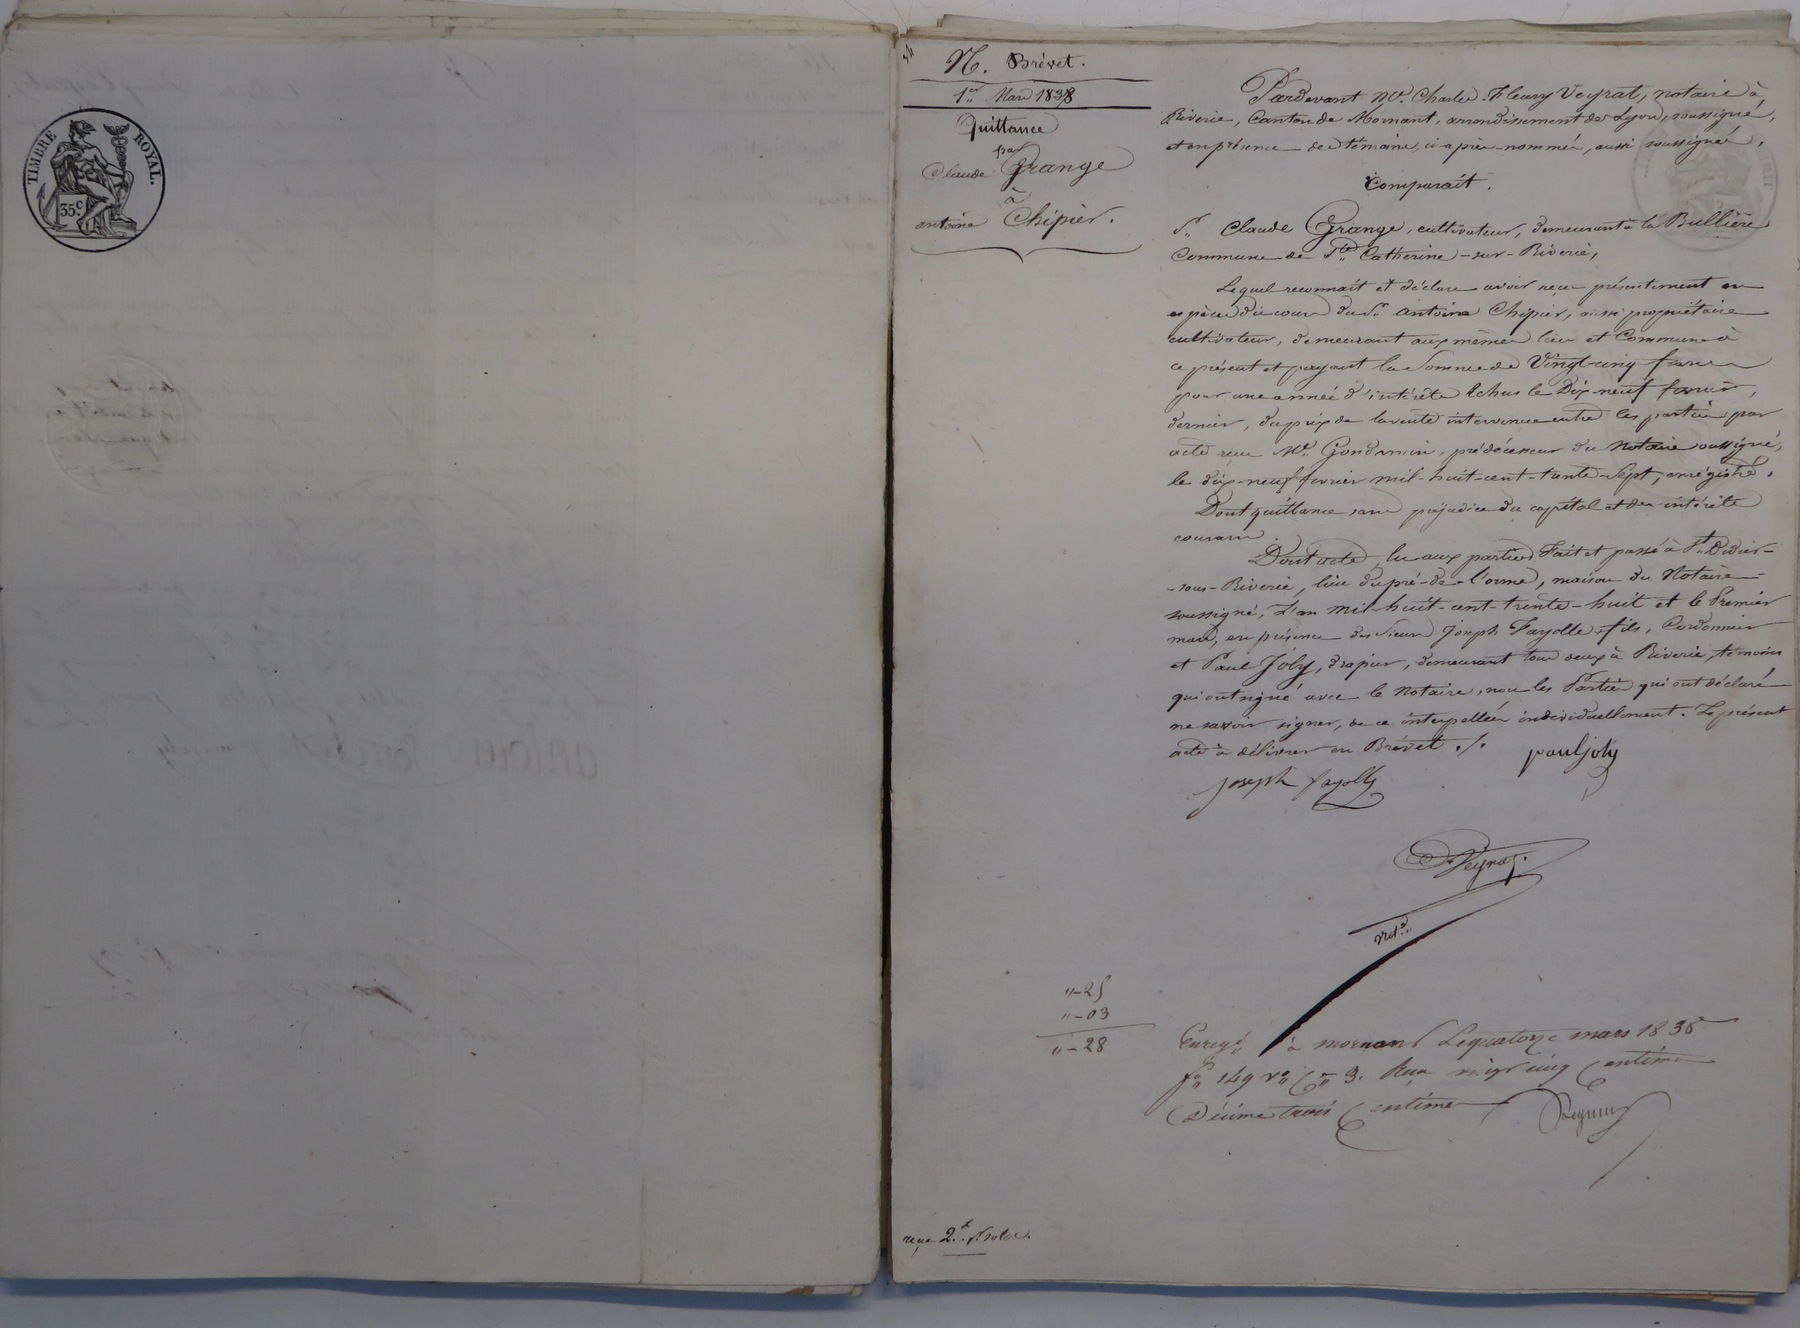 TIMBRE ROYAL.
35.c
N. Brévet.
1er Mars 1838
Quittance
par
Claude Grange
à
antoine Chipier.
Pardevant Me. Charles-Fleury Veyrat, notaire à
Riverie, Canton de Mornant, arrondissement de Lyon, soussigné,
et en présence des témoins, ci-après-nommés, aussi soussignés,
Comparaît.
Sr. Claude Grange, cultivateur, demeurant à la Bullière
Commune de Ste Catherine-sur-Riverie,
Lequel reconnaît et déclare avoir reçu présentement en
espèces du cours du Sr antoine Chipier, aussi propriétaire
cultivateur, demeurant aux mêmes lieu et Commune à
ce présent et payant la Somme de Vingt-cinq francs
pour une année d'intérêts échus le Dix-neuf février,
dernier, du prix de la vente intervenue entre les parties par
acte reçu Me. Gondamin, prédécesseur du Notaire soussigné,
le dix-neuf février mil-huit-cent-trente-Sept, enrégistré.
Dont quittance sans préjudice du capital et des intérêts
courans.
Dont acte, lu aux parties Fait et passé à St. Didier-
-sous-Riverie, lieu du pré-de-l'orme, maison du Notaire
soussigné, L'an mil-huit-cent-trente-huit et le Premier
mars, en présence des Sieurs Joseph Fayolle fils, Cordonnier
et Paul Joly, drapier, demeurant tous deux à Riverie, témoins
qui ont signé avec le Notaire, non les Parties qui ont déclaré
ne savoir signer, de ce interpellées individuellement. Le présent
acte à délivrer en Brévet ./.
paul joly
joseph fayolle
Veyrat.
Not.re
"-25
"-03
"-28
Enregé à mornant Le quatorze mars 1838
fo 149 vo Ce 3. Reçu vingt cinq Centimes
Décime trois Centimes
reçu 2.f